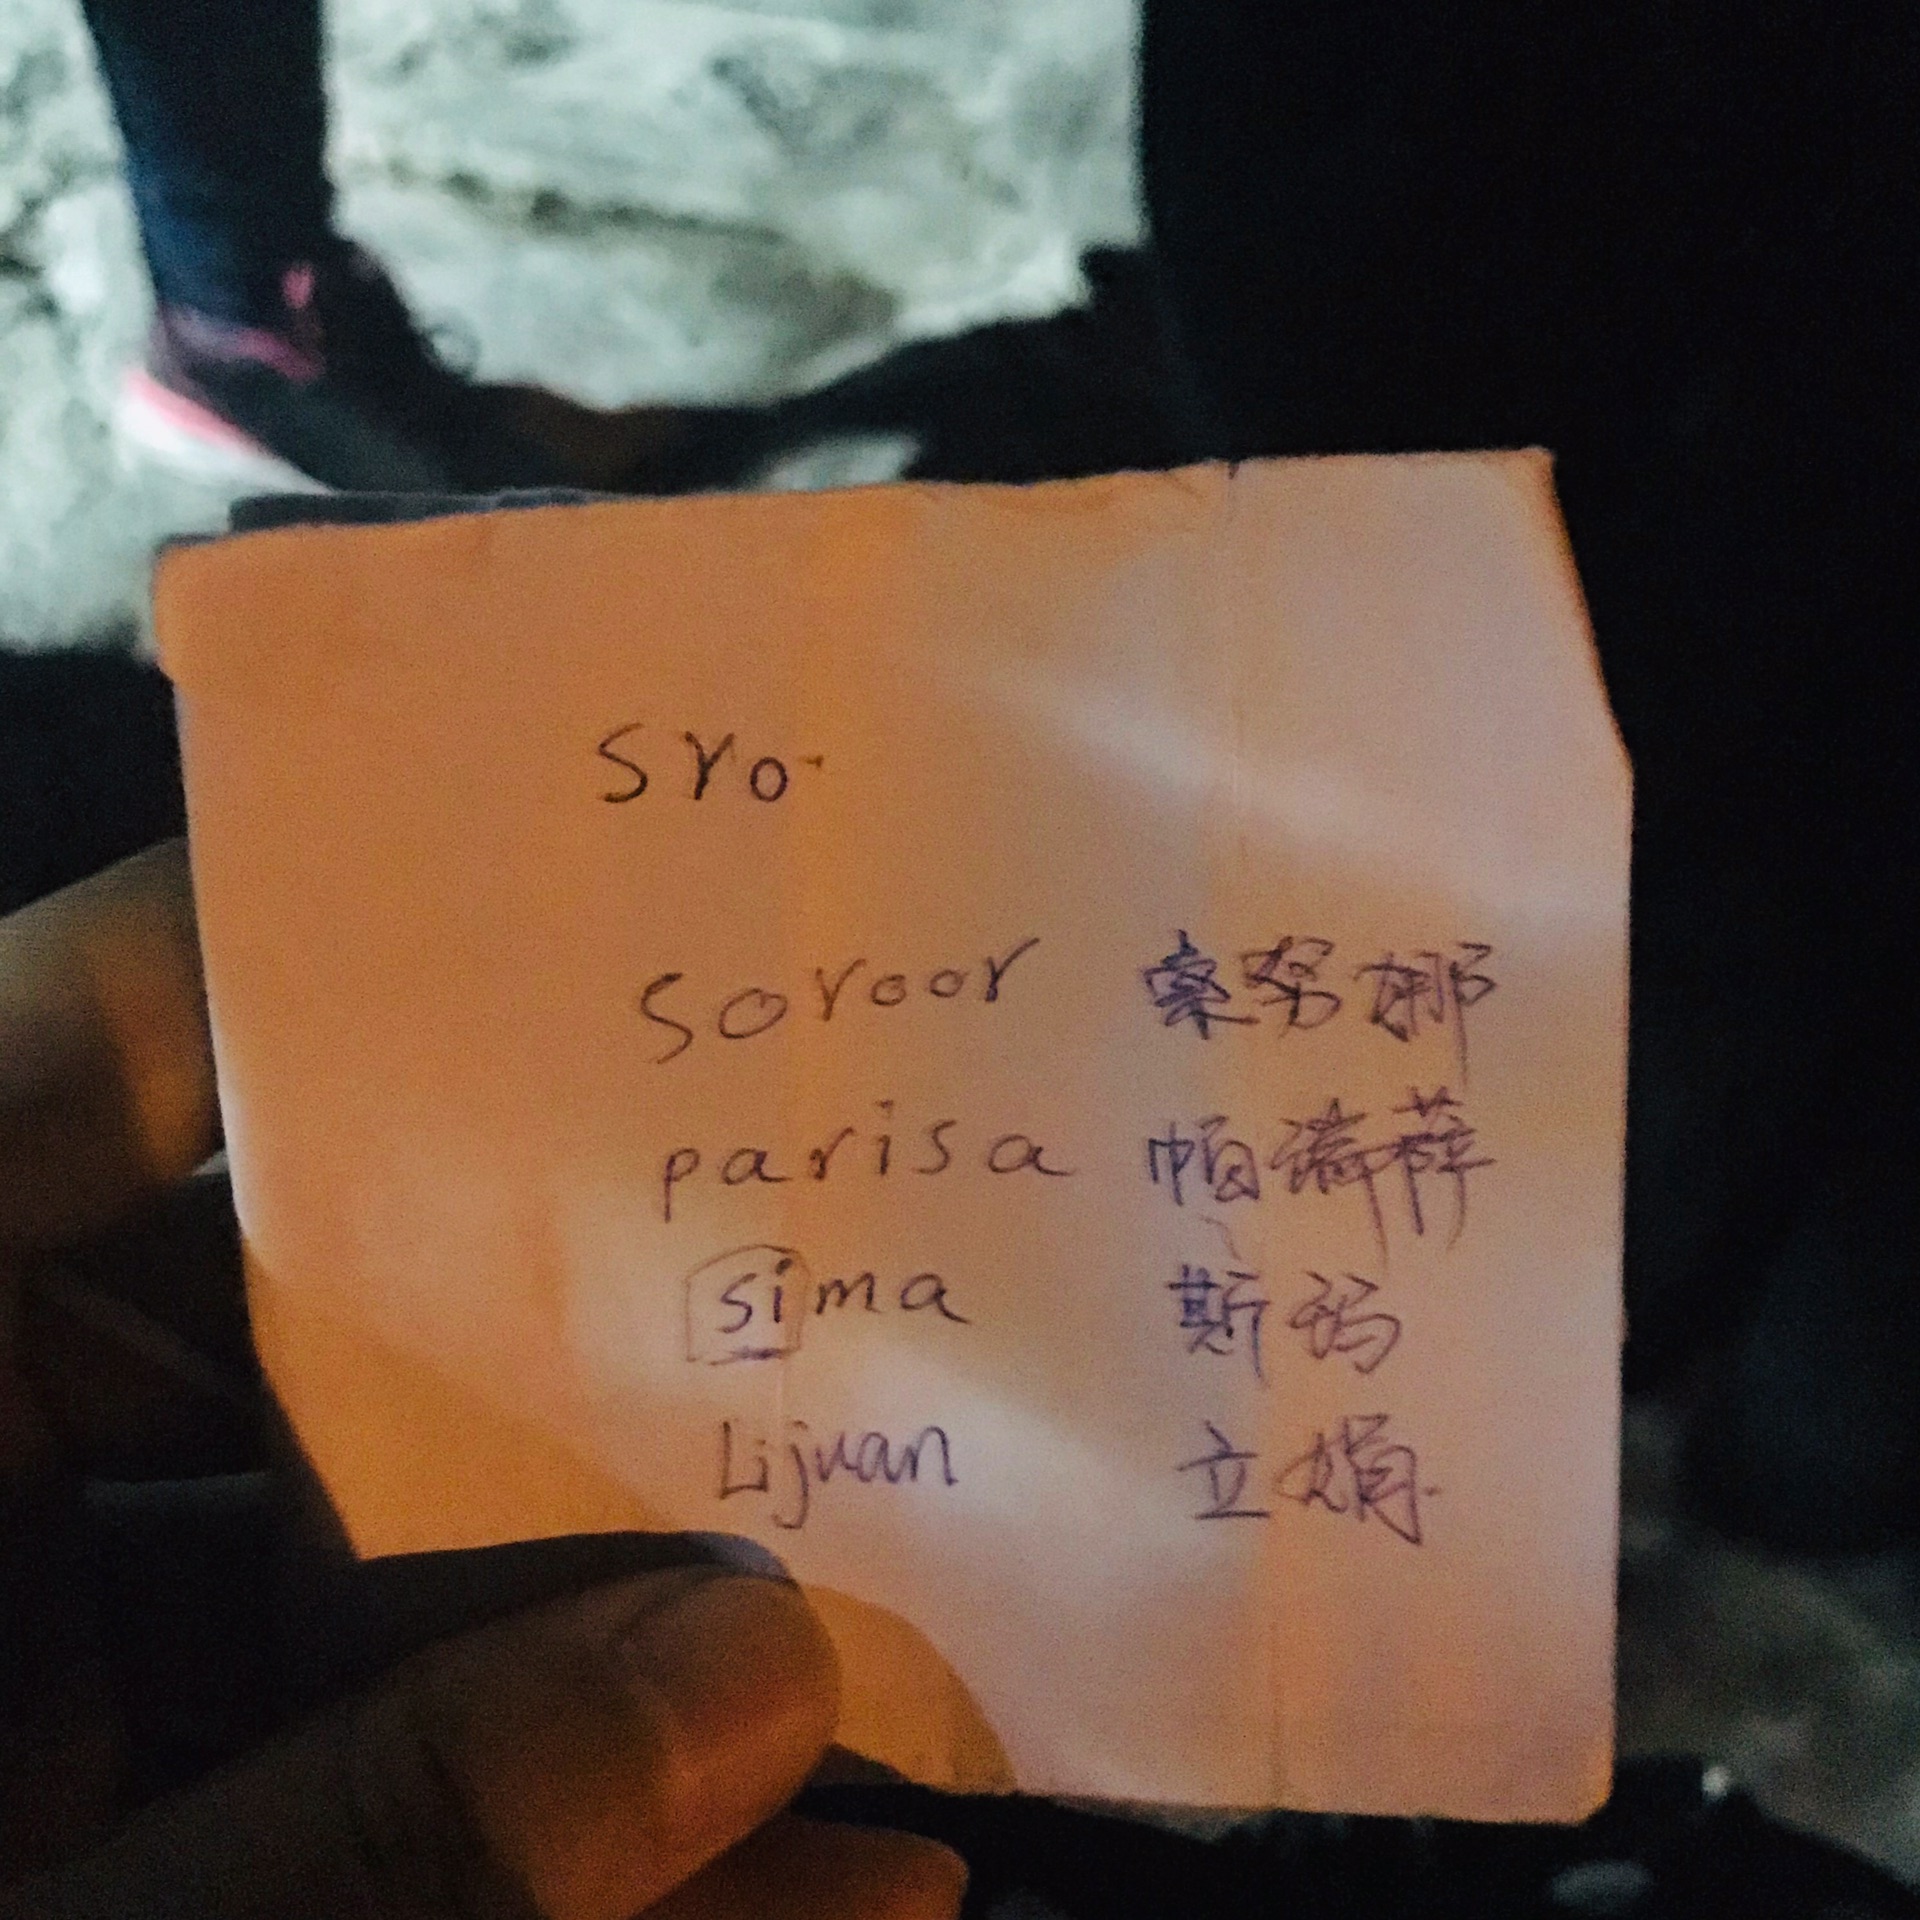 sro
soroor 索努娜
parisa 帕瑞萍
sima 斯玛
Lijuan 立娟